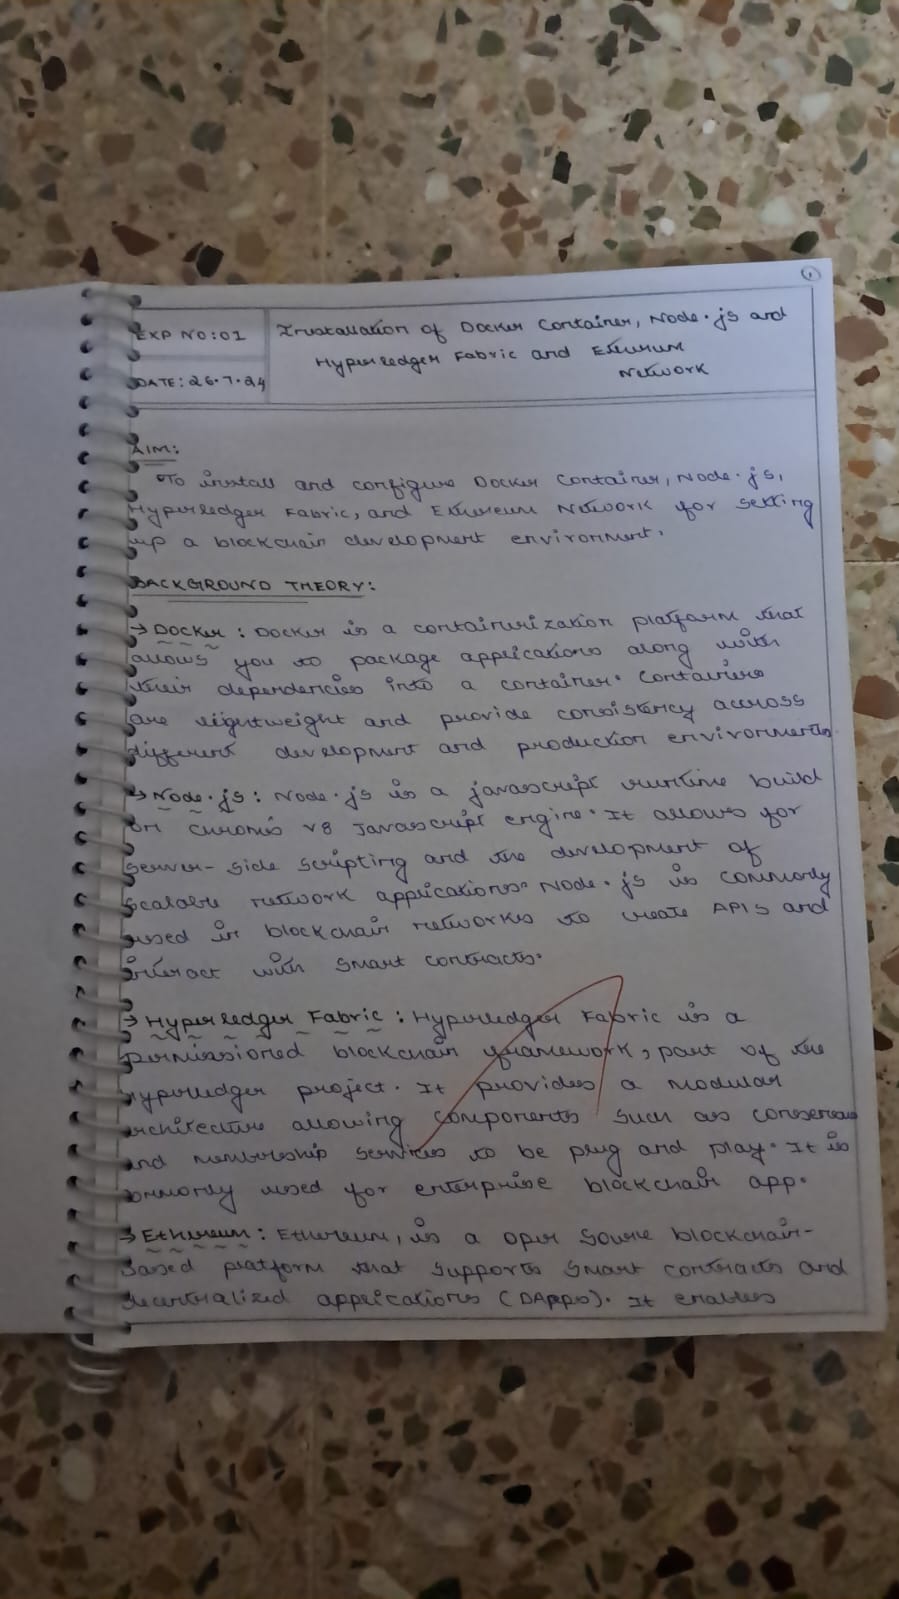 1
EXP NO:01
Installation of Docker Container, Node.js and
Hyperledger Fabric and Ethereum
Network
DATE: 26.7.24
AIM:
To install and configure Docker Container, Node.js,
Hyperledger Fabric, and Ethereum Network for setting
up a blockchain development environment.
BACKGROUND THEORY:
→ Docker: Docker is a containerization platform that
allows you to package applications along with
their dependencies into a container. Containers
are lightweight and provide consistency across
different development and production environments.
→ Node.js: Node.js is a javascript runtime build
on Chrome's V8 Javascript engine. It allows for
server-side scripting and the development of
scalable network applications. Node.js is commonly
used in blockchain networks to create APIs and
interact with smart contracts.
→ Hyperledger Fabric: Hyperledger Fabric is a
permissioned blockchain framework, part of the
Hyperledger project. It provides a modular
architecture allowing components such as consensus
and membership services to be plug and play. It is
commonly used for enterprise blockchain app.
→ Ethereum: Ethereum, is a open source blockchain-
based platform that supports smart contracts and
decentralized applications (DApps). It enables